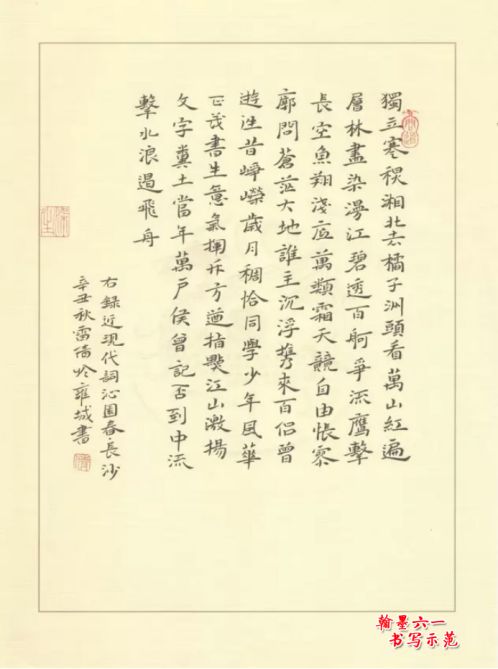 獨立寒秋湘北去橘子洲頭看萬山紅遍
層林盡染漫江碧透百舸爭流鷹擊
長空魚翔淺底萬類霜天競自由悵寥
廓問蒼茫大地誰主沉浮攜來百侶曾
遊往昔崢嶸歲月稠恰同學少年風華
正茂書生意氣揮斥方遒指點江山激揚
文字糞土當年萬戶侯曾記否到中流
擊水浪遏飛舟
右錄近現代詞沁園春長沙
辛丑秋雷於雍城書
翰墨六一
书写示范